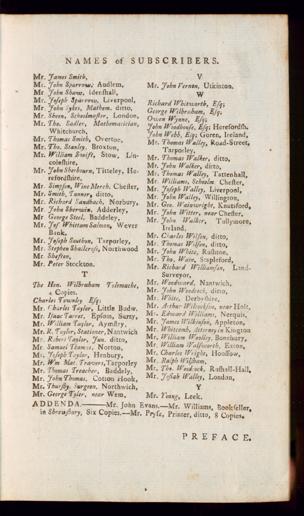 NAMES of SUBSCRIBERS.
Mr. James Smith,
Mr. John Sparrow, Audlem,
Mr. John Shaw, Idenshall,
Mr. Joseph Sparrow, Liverpool,
Mr. John Sykes, Mathem. ditto,
Mr. Sheen, Schoolmaster, London,
Mr. Tho. Sadler, Mathematician,
Whitchurch,
Mr. Thomas Smith, Overtoe,
Mr. Tho. Stanley, Broxton,
Mr. William Swift, Stow, Lin-
colnshire,
Mr. John Sherbourn, Titteley, He-
refordshire,
Mr. Simpson, Wine Merch. Chester,
Mr. Smith, Tanner, ditto,
Mr. Richard Sandbach, Norbury,
Mr. John Sherwin, Adderley,
Mr. George Steel, Baddeley,
Mr. Jos. Whittam Salmon, Wever
Bank,
Mr. Joseph Southan, Tarporley,
Mr. Stephen Shallcross, Northwood
Mr. Shaston,
Mr. Peter Stockton.
T
The Hon. Wilbraham Tolemache,
4 Copies.
Charles Townley Esq;
Mr. Charles Taylor, Little Budw.
Mr. Isaac Tarrat, Epsom, Surry,
Mr. William Taylor, Aymstry,
Mr. R. Taylor, Stationer, Nantwich
Mr. Robert Taylor, Jun. ditto,
Mr. Samuel Tomkis, Norton,
Mr. Joseph Taylor, Henbury,
Mr. Wm Mat. Travers, Tarporley
Mr. Thomas Treacher, Baddely,
Mr. John Thomas, Cotton Hook,
Mr. Thursby, Surgeon, Northwich,
Mr. George Tyler, near Wem,
V
Mr. John Vernon, Utkinton.
W
Richard Whitworth, Esq;
George Wilbraham, Esq;
Owen Wynne, Esq;
John Woodhouse, Esq; Herefordsh.
John Webb, Esq; Goren, Ireland,
Mr. Thomas Walley, Road-Street,
Tarporley,
Mr. Thomas Walker, ditto,
Mr. John Walker, ditto,
Mr. Thomas Walley, Tattenhall,
Mr. Williams, Schoolm. Chester,
Mr. Joseph Walley, Liverpool,
Mr. John Walley, Willington,
Mr. Geo. Wainwright, Rushford,
Mr. John Witter, near Chester,
Mr. John Walker, Tullymore,
Ireland,
Mr. Charles Wilson, ditto,
Mr. Thomas Wilson, ditto,
Mr. John White, Rushton,
Mr. Tho. Wate, Stapleford,
Mr. Richard Williamson, Land-
Surveyor,
Mr. Woodward, Nantwich,
Mr. John Woodnoth, ditto,
Mr. White, Derbyshire,
Mr. Arthur Wilcockson, near Holt,
Mr. Edward Williams, Nerquis,
Mr. James Wilkinson, Appleton,
Mr. Whitcomb, Attorney in Kington
Mr. William Woolley, Bonsbury,
Mr. William Walsworth, Exton,
Mr. Charles Wright, Houslow,
Mr. Ralph Wilkson,
Mr. Tho. Woodcock, Rushall-Hall,
Mr. Josiah Walley, London,
Y
Mr. Young, Leek.
ADDENDA.———Mr. John Evans.—Mr. Williams, Bookseller,
in Shrewsbury, Six Copies.—Mr. Pryse, Printer, ditto, 8 Copies.
PREFACE.